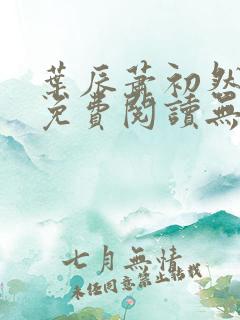 葉辰蕭初然
免費閱讀無
七月無情
未經同意禁止轉載